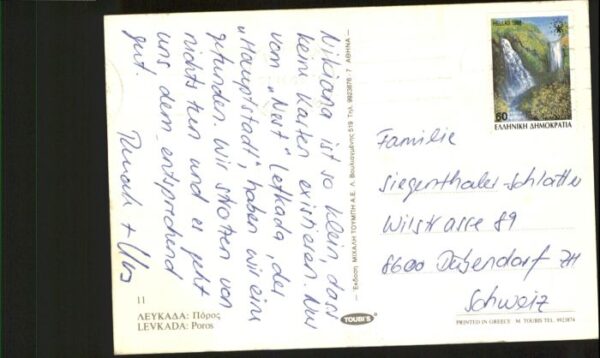 Nikiana ist so klein, dass
keine Karten existieren. Nur
vom "Nest" Lefkada, der
"Hauptstadt", haben wir eine
gefunden. Wir strotzen von
nichts tun und es geht
uns dem entsprechend
gut.
+ Urs
11
ΛΕΥΚΑΔΑ: Πόρος
LEVKADA: Poros
— Έκδοση: ΜΙΧΑΛΗ ΤΟΥΜΠΗ Α.Ε. Λ. Βουλιαγμένης 519 Τηλ. 9923876 7 ΑΘΗΝΑ —
TOUBI'S
HELLAS 1988
60
ΕΛΛΗΝΙΚΗ ΔΗΜΟΚΡΑΤΙΑ
Familie
Siegenthaler-Schlatter
Wilstrasse 89
8600 Dübendorf ZH
Schweiz
PRINTED IN GREECE · M. TOUBIS TEL. 9923876